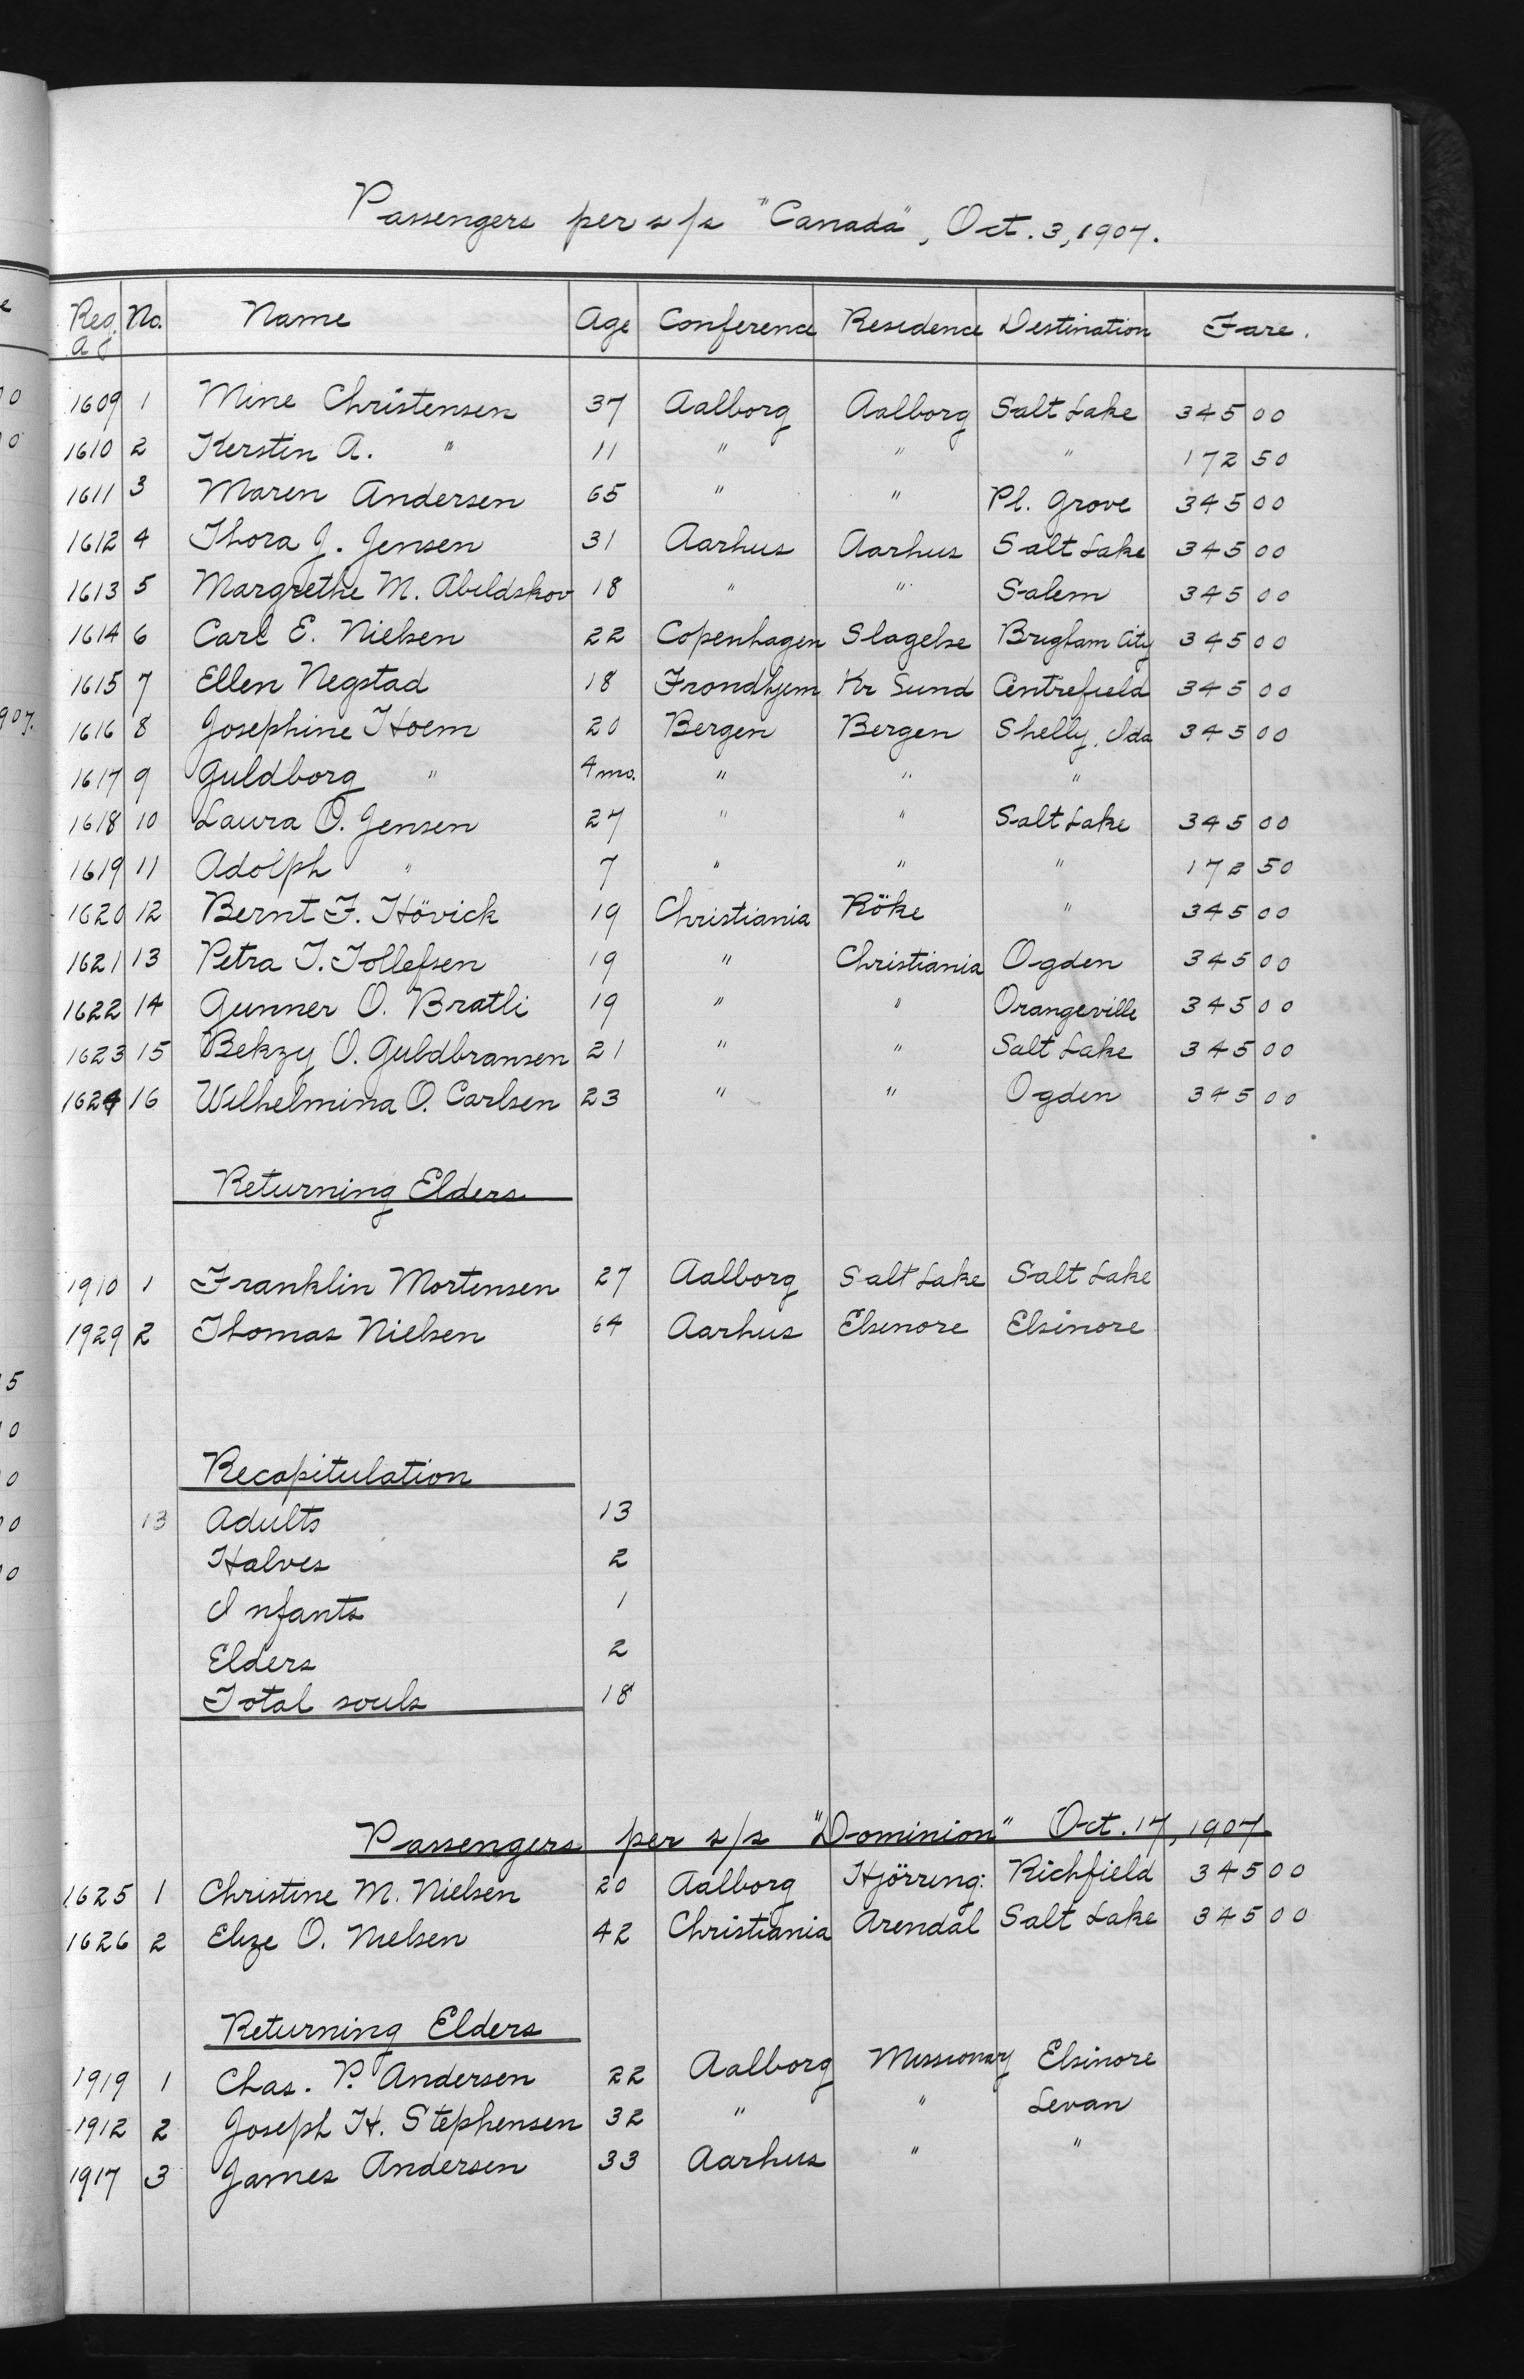 Passengers per s/s "Canada", Oct. 3, 1907.
Reg. No. Name Age Conference Residence Destination Fare.
1609 1 Mine Christensen 37 Aalborg Aalborg Salt Lake 345 00
1610 2 Kersten A. " 11 " " " 172 50
1611 3 Maren Andersen 65 " " Pl. Grove 345 00
1612 4 Thora J. Jensen 31 Aarhus Aarhus Salt Lake 345 00
1613 5 Margrethe M. Abildskov 18 " " Salem 345 00
1614 6 Carl E. Nielsen 22 Copenhagen Slagelse Brigham City 345 00
1615 7 Ellen Negstad 18 Trondhjem Kr Sund Centrefield 345 00
1616 8 Josephine Hoem 20 Bergen Bergen Shelly, Ida 345 00
1617 9 Guldborg " 4 mo. " " "
1618 10 Laura O. Jensen 27 " " Salt Lake 345 00
1619 11 Adolph " 7 " " " 172 50
1620 12 Bernt F. Hövick 19 Christiania Röke " 345 00
1621 13 Petra T. Tollefsen 19 " Christiania Ogden 345 00
1622 14 Gunner O. Bratli 19 " " Orangeville 345 00
1623 15 Bekzy O. Guldbransen 21 " " Salt Lake 345 00
1624 16 Wilhelmina O. Carlsen 23 " " Ogden 345 00
Returning Elders
1910 1 Franklin Mortensen 27 Aalborg Salt Lake Salt Lake
1929 2 Thomas Nielsen 64 Aarhus Elsinore Elsinore
Recapitulation
13 Adults 13
Halves 2
Infants 1
Elders 2
Total souls 18
Passengers per s/s "Dominion" Oct. 17, 1907
1625 1 Christine M. Nielsen 20 Aalborg Hjörring: Richfield 345 00
1626 2 Elize O. Nielsen 42 Christiania Arendal Salt Lake 345 00
Returning Elders
1919 1 Chas. P. Andersen 22 Aalborg Missionary Elsinore
1912 2 Joseph H. Stephensen 32 " " Levan
1917 3 James Andersen 33 Aarhus " "